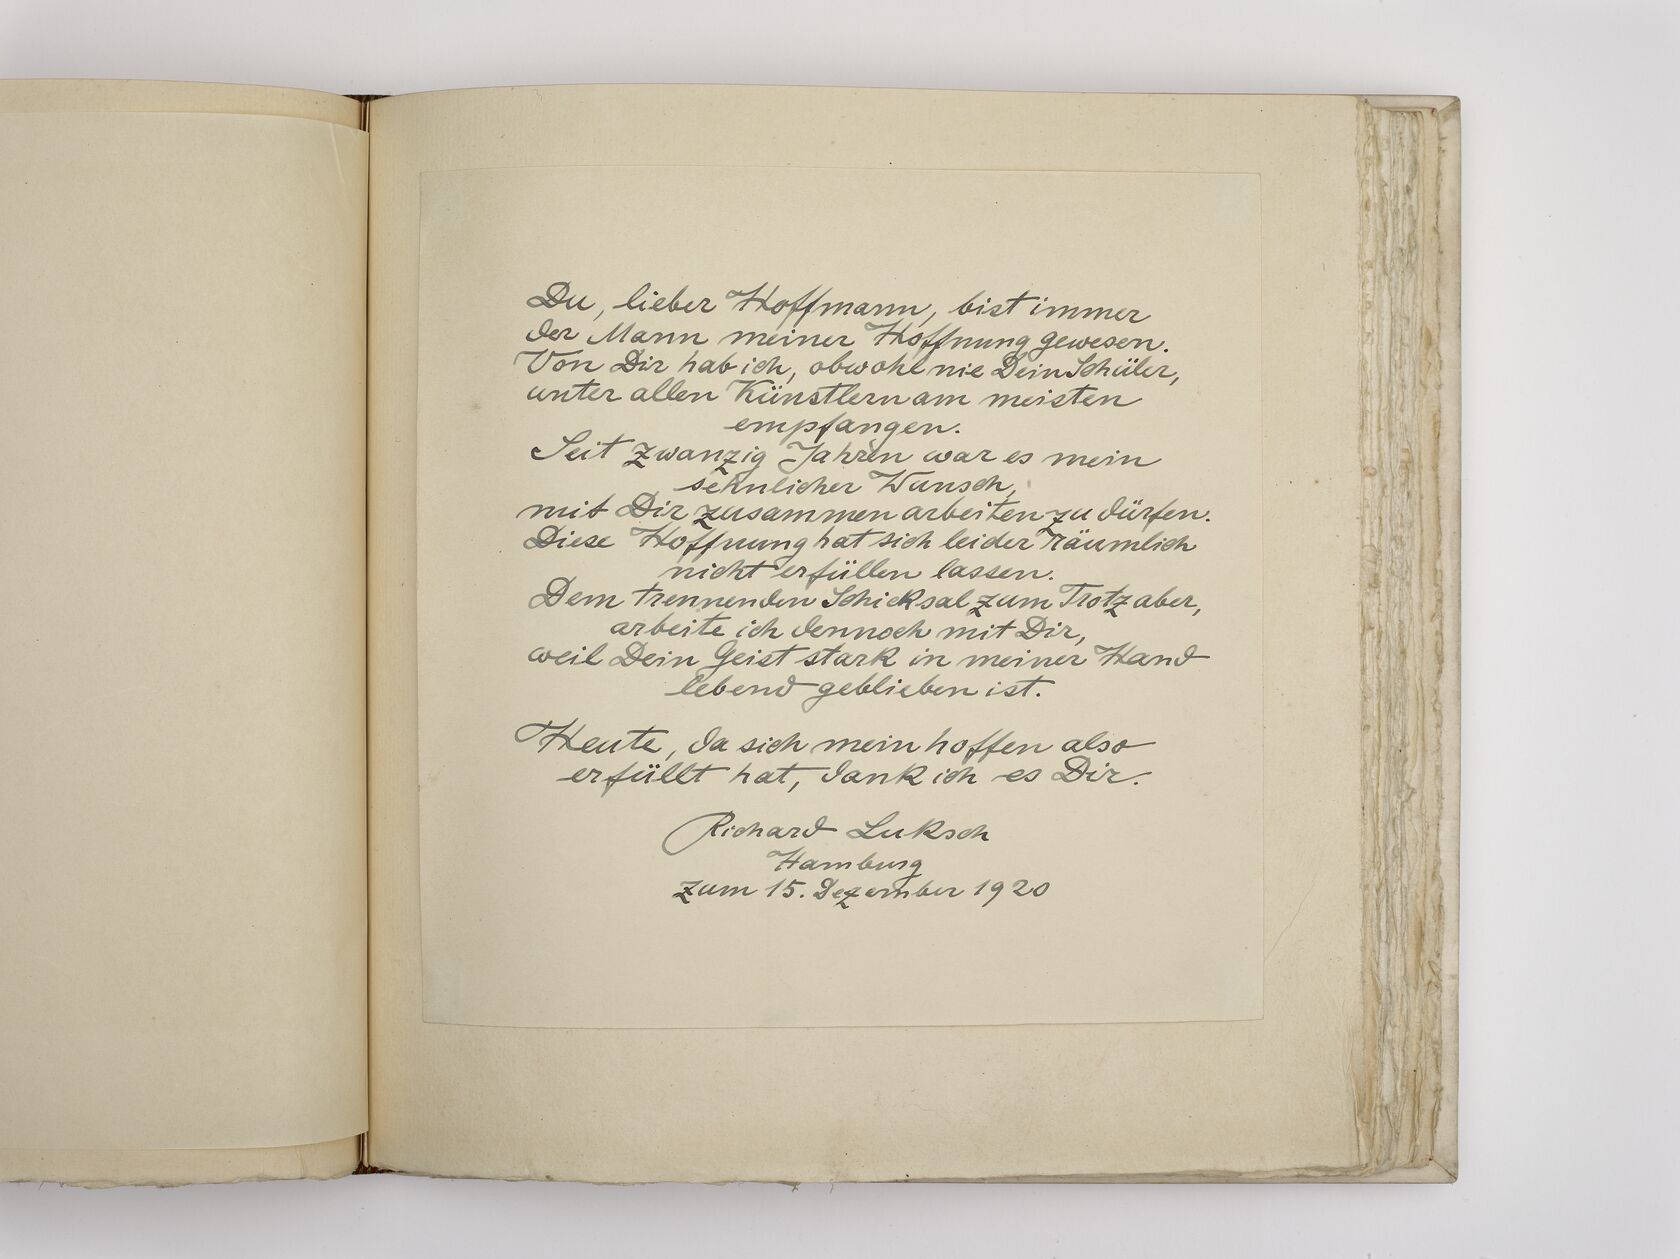 Du, lieber Hoffmann, bist immer
der Mann meiner Hoffnung gewesen.
Von Dir hab ich, obwohl nie Dein Schüler,
unter allen Künstlern am meisten
empfangen.
Seit zwanzig Jahren war es mein
sehnlicher Wunsch,
mit Dir zusammen arbeiten zu dürfen.
Diese Hoffnung hat sich leider räumlich
nicht erfüllen lassen.
Dem trennenden Schicksal zum Trotz aber,
arbeite ich dennoch mit Dir,
weil Dein Geist stark in meiner Hand
lebend geblieben ist.
Heute, da sich mein hoffen also
erfüllt hat, dank ich es Dir.
Richard Luksch
Hamburg
zum 15. Dezember 1920